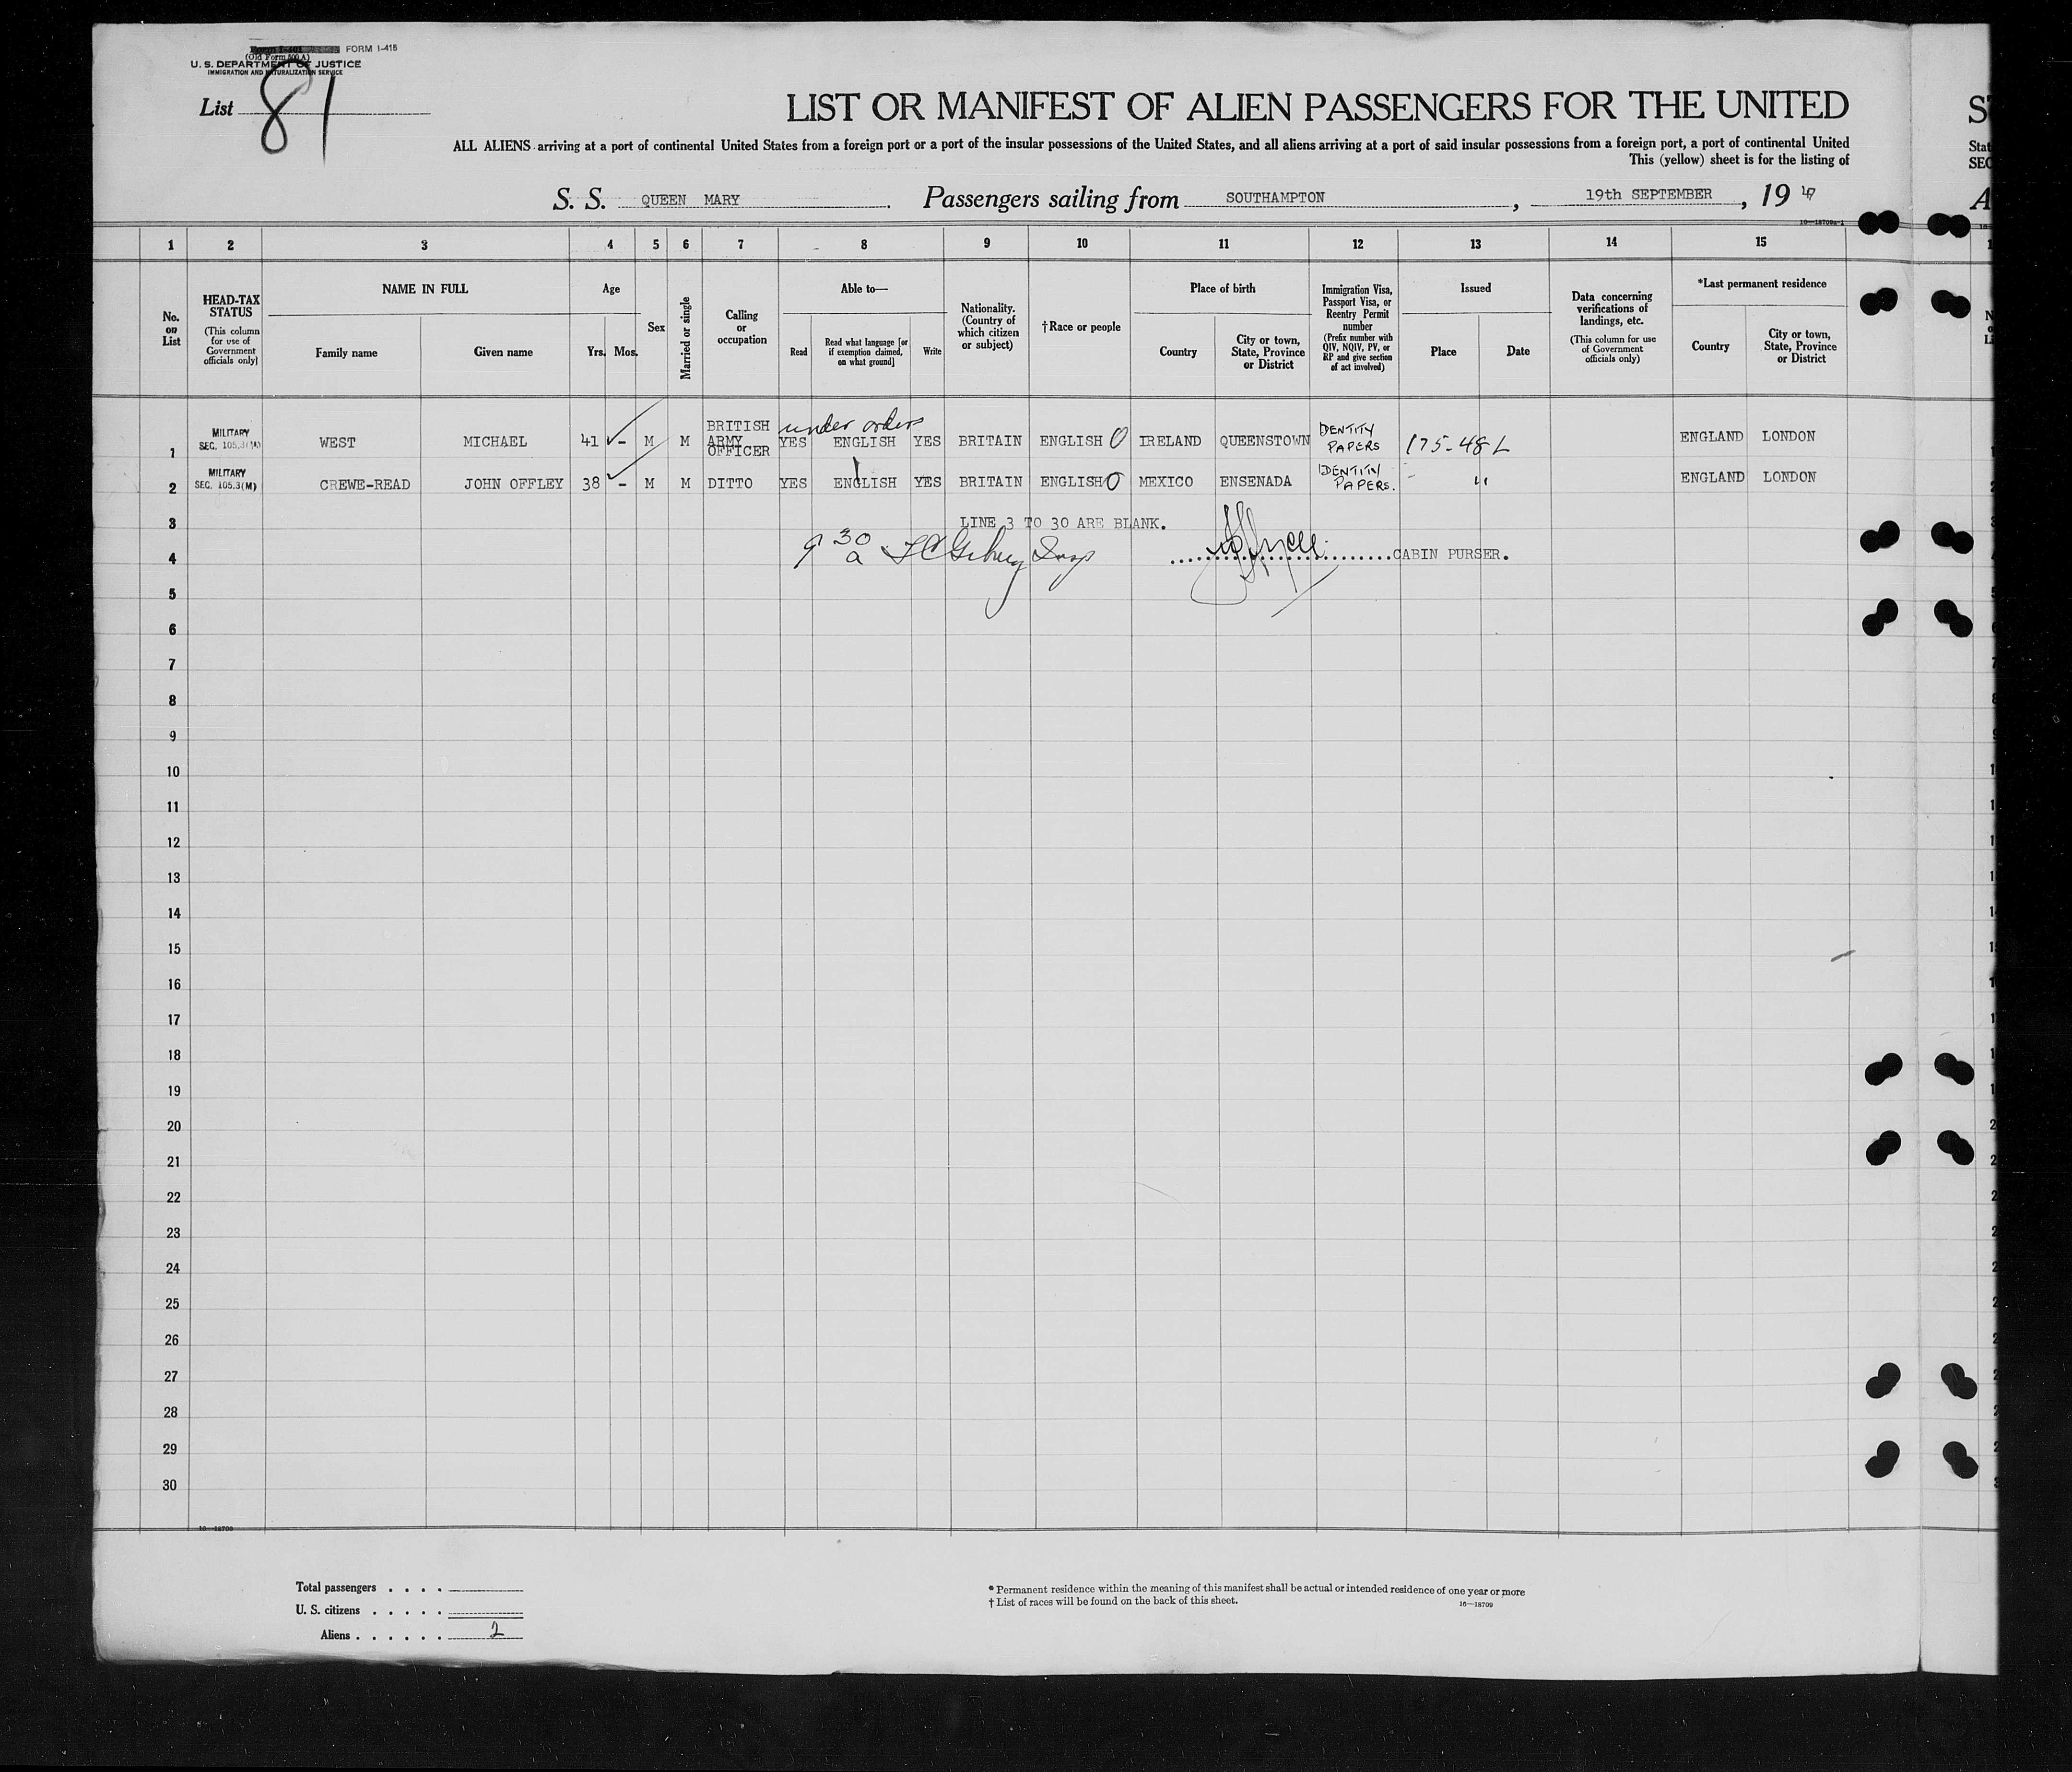 FORM I-415
(Old Form 500 A)
U. S. DEPARTMENT OF JUSTICE
IMMIGRATION AND NATURALIZATION SERVICE
List 81
LIST OR MANIFEST OF ALIEN PASSENGERS FOR THE UNITED
ALL ALIENS arriving at a port of continental United States from a foreign port or a port of the insular possessions of the United States, and all aliens arriving at a port of said insular possessions from a foreign port, a port of continental United
This (yellow) sheet is for the listing of
S. S. QUEEN MARY. Passengers sailing from SOUTHAMPTON, 19th SEPTEMBER, 1947
1 2 3 4 5 6 7 8 9 10 11 12 13 14 15
No. on List
HEAD-TAX STATUS (This column for use of Government officials only)
NAME IN FULL
Family name
Given name
Age
Yrs.
Mos.
Sex
Married or single
Calling or occupation
Able to—
Read
Read what language [or if exemption claimed, on what ground]
Write
Nationality. (Country of which citizen or subject)
†Race or people
Place of birth
Country
City or town, State, Province or District
Immigration Visa, Passport Visa, or Reentry Permit number (Prefix number with QIV, NQIV, PV, or RP and give section of act involved)
Issued
Place
Date
Data concerning verifications of landings, etc. (This column for use of Government officials only)
*Last permanent residence
Country
City or town, State, Province or District
under orders
1 MILITARY SEC. 105.3(M) WEST MICHAEL 41 - M M BRITISH ARMY OFFICER YES ENGLISH YES BRITAIN ENGLISH IRELAND QUEENSTOWN IDENTITY PAPERS 175-48L ENGLAND LONDON
2 MILITARY SEC. 105.3(M) CREWE-READ JOHN OFFLEY 38 - M M DITTO YES ENGLISH YES BRITAIN ENGLISH MEXICO ENSENADA IDENTITY PAPERS. " ENGLAND LONDON
3 LINE 3 TO 30 ARE BLANK.
4 9 30 a Insp CABIN PURSER.
5
6
7
8
9
10
11
12
13
14
15
16
17
18
19
20
21
22
23
24
25
26
27
28
29
30
Total passengers
U. S. citizens
Aliens 2
* Permanent residence within the meaning of this manifest shall be actual or intended residence of one year or more
† List of races will be found on the back of this sheet.
16—18709